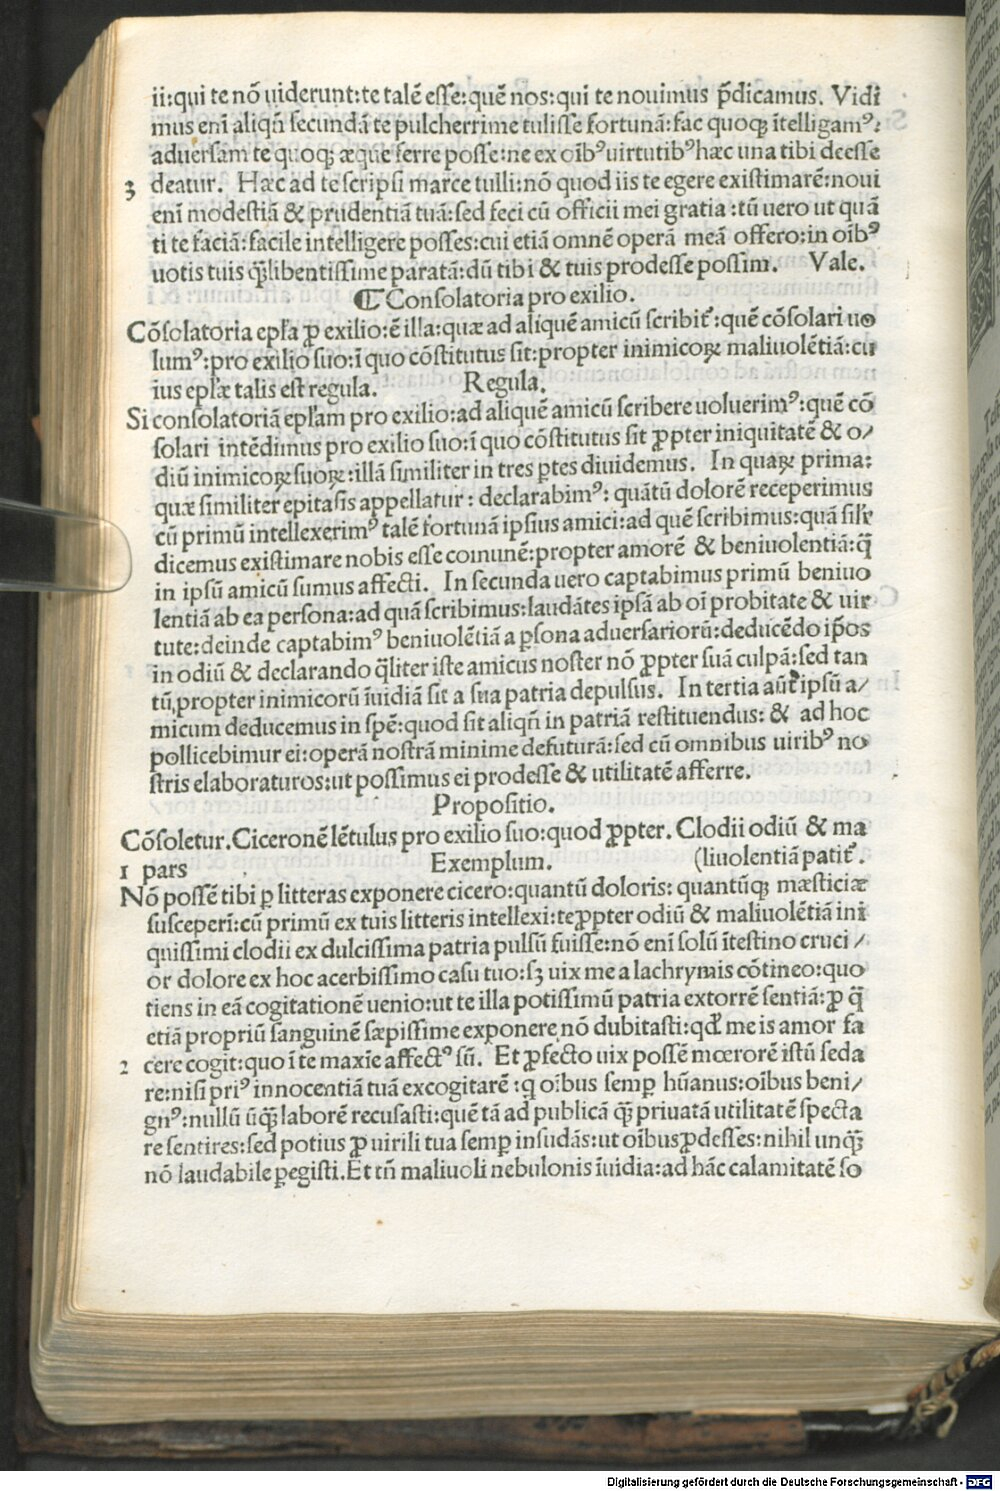 ii:qui te nõ uiderunt:te talẽ esse:quẽ nos:qui te nouimus p̃dicamus. Vidi
mus enĩ aliqñ secundã te pulcherrime tulisse fortunã:fac quoqꝫ ĩtelligamꝰ:
aduersam te quoqꝫ æque ferre posse:ne ex oĩbꝰ uirtutibꝰ hæc una tibi deesse
3 deatur. Hæc ad te scripsi marce tulli:nõ quod iis te egere existimarẽ:noui
enĩ modestiã & prudentiã tuã:sed feci cũ officii mei gratia:tũ uero ut quã
ti te faciã:facile intelligere posses:cui etiã omnẽ operã meã offero:in oĩbꝰ
uotis tuis q̃libentissime paratã:dũ tibi & tuis prodesse possim. Vale.
¶ Consolatoria pro exilio.
Cõsolatoria epl̃a ꝓ exilio:ẽ illa:quæ ad aliquẽ amicũ scribit̃:quẽ cõsolari uo
lumꝰ:pro exilio suo:ĩ quo cõstitutus sit:propter inimicoꝝ maliuolẽtiã:cu
ius epl̃æ talis est regula. Regula.
Si consolatoriã epl̃am pro exilio:ad aliquẽ amicũ scribere uoluerimꝰ:quẽ cõ
solari intẽdimus pro exilio suo:ĩ quo cõstitutus sit ꝓpter iniquitatẽ & o/
diũ inimicoꝝ suoꝝ:illã similiter in tres ꝑtes diuidemus. In quaꝝ prima:
quæ similiter epitasis appellatur: declarabimꝰ: quãtũ dolorẽ receperimus
cũ primũ intellexerimꝰ talẽ fortunã ipsius amici:ad quẽ scribimus:quã sil̃r
dicemus existimare nobis esse cõmunẽ:propter amorẽ & beniuolentiã:q̃
in ipsũ amicũ sumus affecti. In secunda uero captabimus primũ beniuo
lentiã ab ea persona:ad quã scribimus:laudãtes ipsã ab oĩ probitate & uir
tute:deinde captabimꝰ beniuolẽtiã a ꝑsona aduersariorũ:deducẽdo ip̃os
in odiũ & declarando q̃liter iste amicus noster nõ ꝓpter suã culpã:sed tan
tũ,propter inimicorũ ĩuidiã sit a sua patria depulsus. In tertia aũt ipsũ a/
micum deducemus in spẽ:quod sit aliqñ in patriã restituendus: & ad hoc
pollicebimur ei:operã nostrã minime defuturã:sed cũ omnibus uiribꝰ no
stris elaboraturos:ut possimus ei prodesse & utilitatẽ afferre.
Propositio.
Cõsoletur.Ciceronẽ lẽtulus pro exilio suo:quod ꝓpter. Clodii odiũ & ma
1 pars Exemplum. (liuolentiã patit̃.
Nõ possẽ tibi ꝑ litteras exponere cicero:quantũ doloris: quantũqꝫ mæsticiæ
susceperĩ:cũ primũ ex tuis litteris intellexi:te ꝓpter odiũ & maliuolẽtiã ini
quissimi clodii ex dulcissima patria pulsũ fuisse:nõ enĩ solũ ĩtestino cruci/
or dolore ex hoc acerbissimo casu tuo:sꝫ uix me a lachrymis cõtineo:quo
tiens in eã cogitationẽ uenio:ut te illa potissimũ patria extorrẽ sentiã:ꝓ q̃
etiã propriũ sanguinẽ sæpissime exponere nõ dubitasti:qđ me is amor fa
2 cere cogit:quo ĩ te maxĩe affectꝰ sũ. Et ꝓfecto uix possẽ mœrorẽ istũ seda
re:nisi priꝰ innocentiã tuã excogitarẽ:q̇ oĩbus semꝑ hũanus:oĩbus beni/
gnꝰ:nullũ ũq̃ laborẽ recusasti:quẽ tã ad publicã q̃ priuatã utilitatẽ specta
re sentires:sed potius ꝓ uirili tua semꝑ insudãs:ut oĩbus ꝓdesses:nihil unq̃
nõ laudabile ꝑegisti.Et tñ maliuoli nebulonis ĩuidia:ad hãc calamitatẽ so
Digitalisierung gefördert durch die Deutsche Forschungsgemeinschaft - DFG